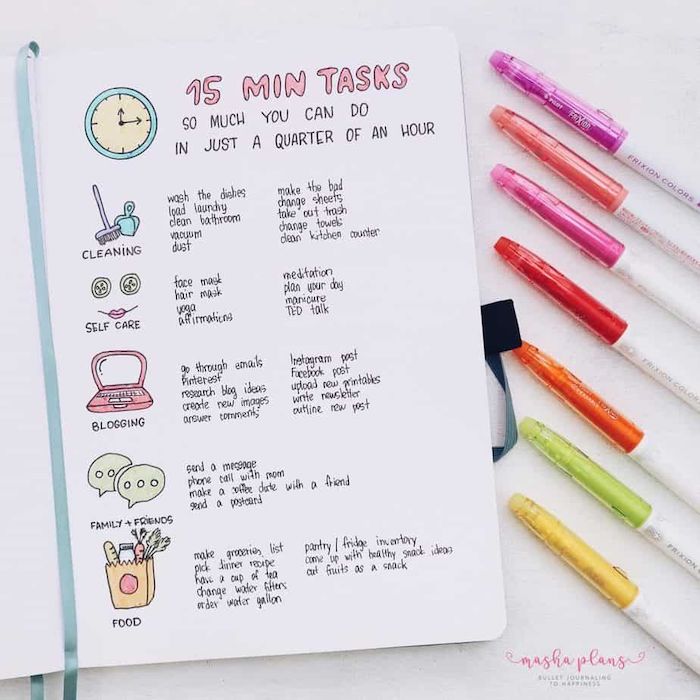 15 MIN TASKS
SO MUCH YOU CAN DO
IN JUST A QUARTER OF AN HOUR
CLEANING
wash the dishes
load laundry
clean bathroom
vacuum
dust
make the bad
change sheets
take out trash
change towels
clean kitchen counter
SELF CARE
face mask
hair mask
yoga
affirmations
meditation
plan your day
manicure
TED talk
BLOGGING
go through emails
Pinterest
research blog ideas
create new images
answer comments
Instagram post
Facebook post
upload new printables
write newsletter
outline new post
FAMILY + FRIENDS
send a message
phone call with mom
make a coffee date with a friend
send a postcard
FOOD
make groceries list
pick dinner recipe
have a cup of tea
change water filters
order water gallon
pantry / fridge inventory
come up with healthy snack ideas
cut fruits as a snack
PILOT FRIXION
FRIXION COLORS
FRIXION COLORS
FRIXION COLORS
FRIXION
masha plans
BULLET JOURNALING
TO HAPPINESS